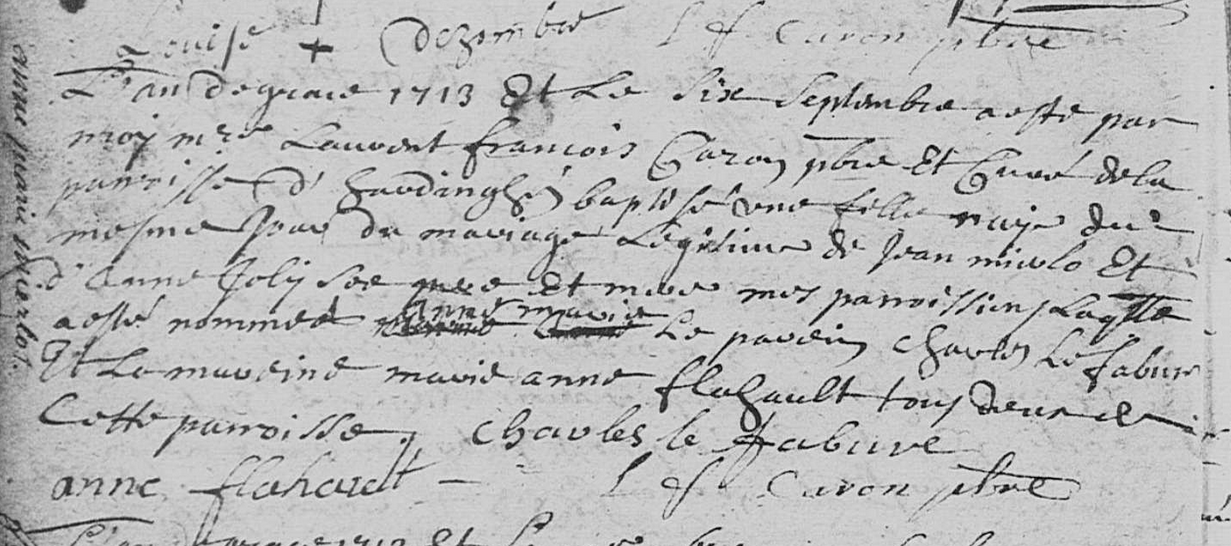 Louise + Dezombre L f Caron pbre
L'an de grace 1713 Et Le six septembre a esté par
moy mre Lauvent francois Caron pbre Et Curé de la
parroisse d'hardinghen baptisé une fille naije du
mesme jour du mariage Légitime de Jean mierlo Et
d'Anne Jolij ses pere Et mere mes parroissiens Laqtte
a esté nommée Anne marie Le parein charles Le fabure
Et La mareine marie anne flahault tous deux de
Cette parroisse, charles le fabure
anne flahault L f Caron pbre
L'an de grace 1713 Et Le
anne marie mierlot.